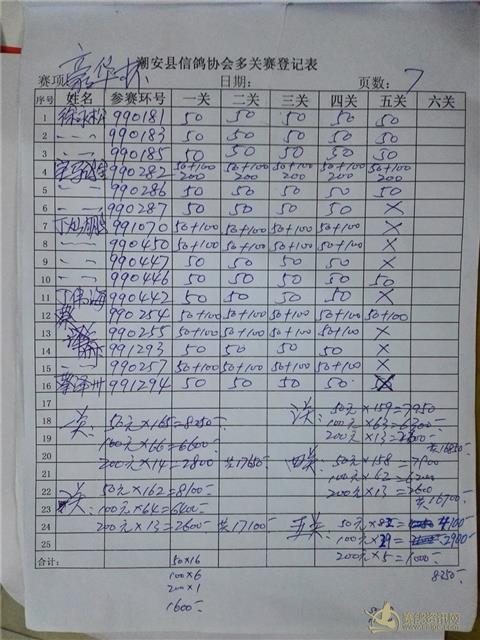 潮安县信鸽协会多关赛登记表
赛项 豪华杯 日期： 页数： 7
序号 姓名 参赛环号 一关 二关 三关 四关 五关 六关
1 徐冰松 990181 50 50 50 50 50
2 〃 990183 50 50 50 50 50
3 〃 990185 50 50 50 50 50
4 990282 50+100 200 50+100 200 50+100 200 50+100 200 50+100 200
5 〃 990286 50 50 50 50 50
6 〃 990287 50 50 50 50 ×
7 991070 50+100 50+100 50+100 50+100 ×
8 〃 990450 50+100 50+100 50+100 50+100 ×
9 〃 990447 50 50 50 50 ×
10 〃 990446 50 50 50 50 50
11 丁伟海 990442 50 50 50 50 ×
12 990254 50+100 50+100 50+100 50+100 50+100
13 990255 50+100 50+100 50+100 50+100 ×
14 991293 50 50 50 50 ×
15 〃 990257 50+100 50+100 50+100 50+100 ×
16 991294 50 50 50 50
17
18 一关: 50元×165=8250 三关: 50元×159=7950
19 100元×66=6600 100元×63=6300
200元×13=2600
20 200元×14=2800 共17650 共16850
21 四关: 50元×158=7900
100元×62=6200
22 二关: 50元×162=8100 200元×13=2600
23 100元×64=6400 共16700
24 200元×13=2600 共17100 五关: 50元×82=4100
25 100元×29=2900
合计： 200元×5=1000
50×16 8250
100×6
200×1
1600
赛鸽资讯网